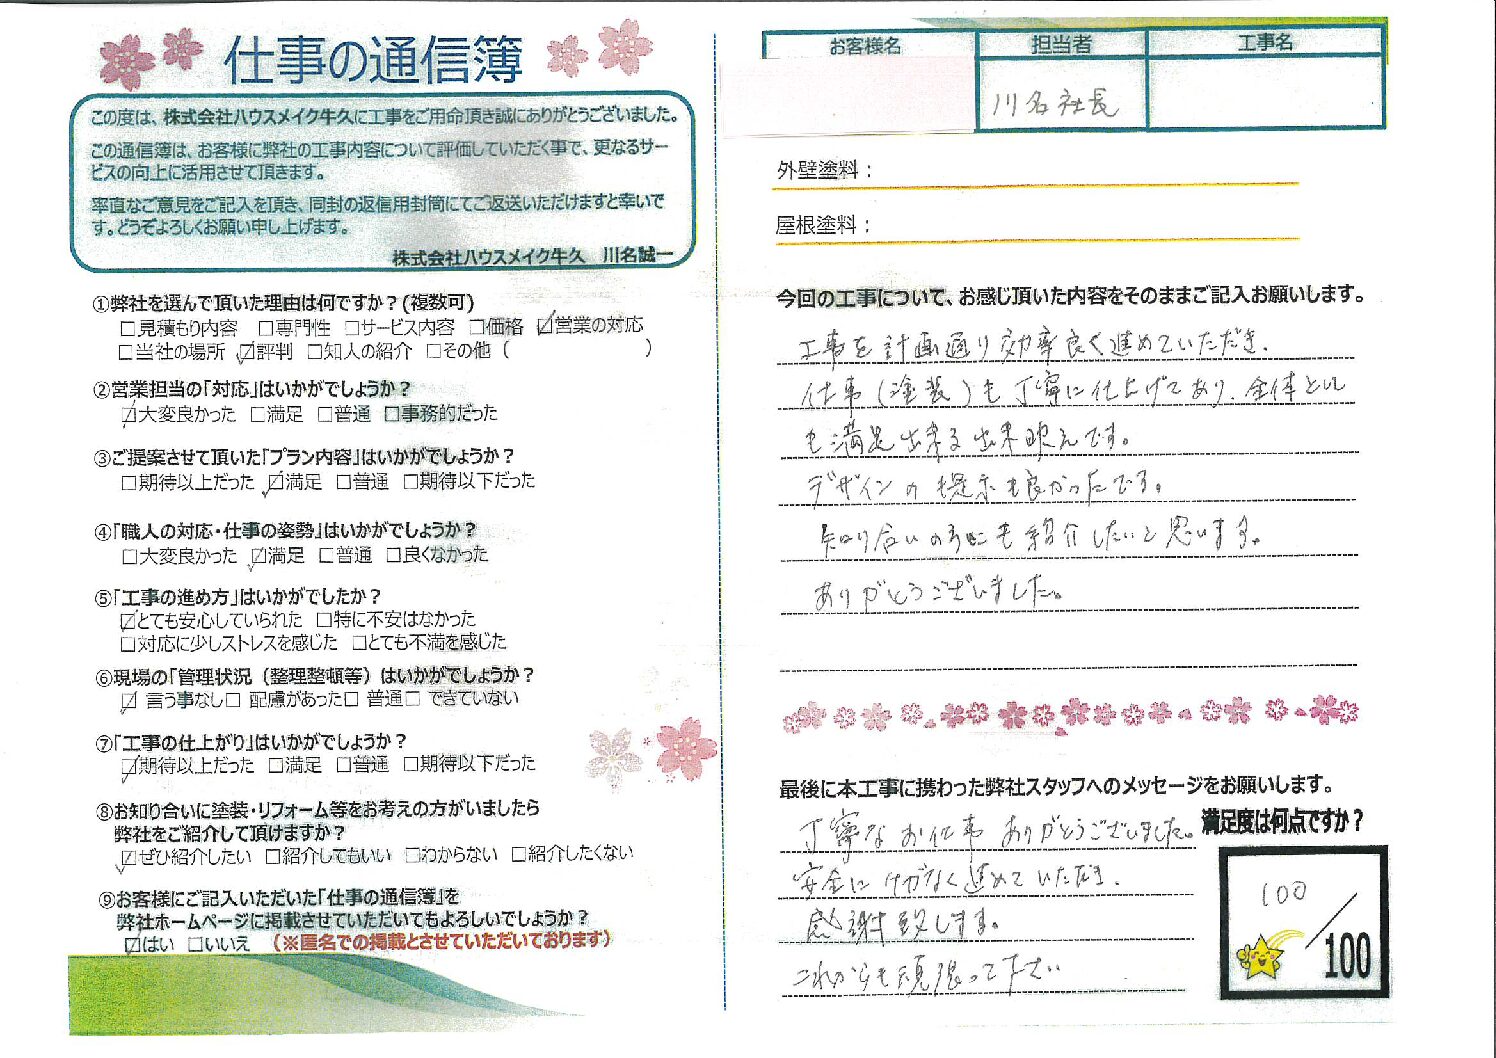 仕事の通信簿
この度は、株式会社ハウスメイク牛久に工事をご用命頂き誠にありがとうございました。
この通信簿は、お客様に弊社の工事内容について評価していただく事で、更なるサー
ビスの向上に活用させて頂きます。
率直なご意見をご記入を頂き、同封の返信用封筒にてご返送いただけますと幸いで
す。どうぞよろしくお願い申し上げます。
株式会社ハウスメイク牛久　川名誠一
①弊社を選んで頂いた理由は何ですか？(複数可)
□見積もり内容 □専門性 □サービス内容 □価格 ☑営業の対応
□当社の場所 ☑評判 □知人の紹介 □その他（　　　　　　　）
②営業担当の「対応」はいかがでしょうか？
☑大変良かった □満足 □普通 □事務的だった
③ご提案させて頂いた「プラン内容」はいかがでしょうか？
□期待以上だった ☑満足 □普通 □期待以下だった
④「職人の対応・仕事の姿勢」はいかがでしょうか？
□大変良かった ☑満足 □普通 □良くなかった
⑤「工事の進め方」はいかがでしたか？
☑とても安心していられた □特に不安はなかった
□対応に少しストレスを感じた □とても不満を感じた
⑥現場の「管理状況（整理整頓等）はいかがでしょうか？
☑ 言う事なし□ 配慮があった□ 普通□ できていない
⑦「工事の仕上がり」はいかがでしょうか？
☑期待以上だった □満足 □普通 □期待以下だった
⑧お知り合いに塗装・リフォーム等をお考えの方がいましたら
弊社をご紹介して頂けますか？
☑ぜひ紹介したい □紹介してもいい □わからない □紹介したくない
⑨お客様にご記入いただいた「仕事の通信簿」を
弊社ホームページに掲載させていただいてもよろしいでしょうか？
☑はい □いいえ （※匿名での掲載とさせていただいております）
お客様名 担当者 工事名
川名社長
外壁塗料：
屋根塗料：
今回の工事について、お感じ頂いた内容をそのままご記入お願いします。
工事を計画通り効率良く進めていただき、
仕事（塗装）も丁寧に仕上げてあり、全体とし
も満足出来る出来映えです。
デザインの提示も良かったです。
知り合いの方にも紹介したいと思います。
ありがとうございました。
最後に本工事に携わった弊社スタッフへのメッセージをお願いします。
丁寧なお仕事ありがとうございました。
安全にけがなく進めていただき、
感謝致します。
これからも頑張って下さい
満足度は何点ですか？
100／100